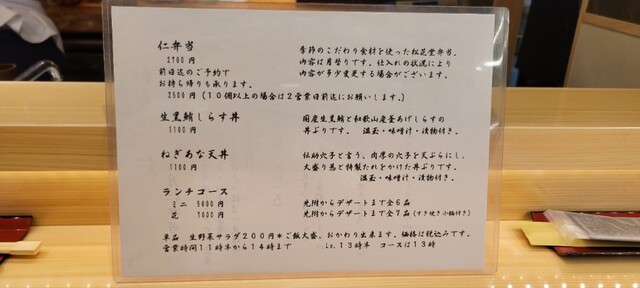 仁弁当　季節のこだわり食材を使った松花堂弁当。
2700円　内容は月替りです。仕入れの状況により
前日迄のご予約で　内容が多少変更する場合がございます。
お持ち帰りも承ります。
2500円（10個以上の場合は2営業日前迄にお願いします。）
生黒鮪しらす丼　国産生黒鮪と和歌山産釜あげしらすの
1100円　丼ぶりです。　温玉・味噌汁・漬物付き。
ねぎあな天丼　伝助穴子と言う、肉厚の穴子を天ぷらにし、
1100円　大盛り葱と特製たれをかけた丼ぶりです。
温玉・味噌汁・漬物付き。
ランチコース
ミニ　5000円　先附からデザートまで全6品
花　7000円　先附からデザートまで全7品（すき焼き小鍋付き）
単品　生野菜サラダ200円＊ご飯大盛、おかわり出来ます。価格は税込みです。
営業時間11時半から14時まで　Lo.13時半　コースは13時